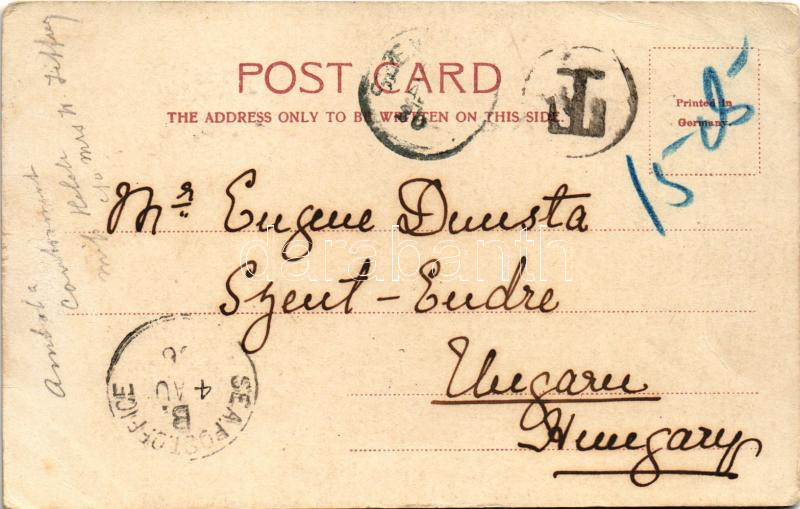 POST CARD
THE ADDRESS ONLY TO BE WRITTEN ON THIS SIDE.
Printed in
Germany.
T
15-
Mr Eugene Dunsta
Szent-Endre
Ungarn
Hungary
SEA POST OFFICE
B.
4 AU
darabanth
Cantonment
c/o Mrs